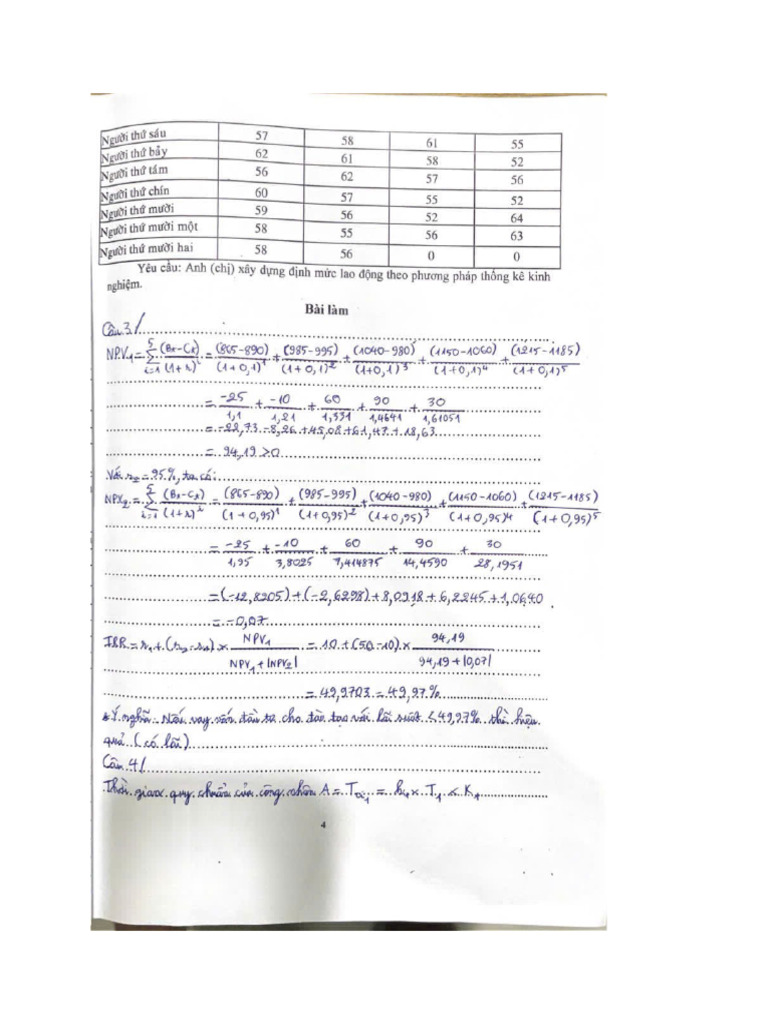 Người thứ sáu 57 58 61 55
Người thứ bảy 62 61 58 52
Người thứ tám 56 62 57 56
Người thứ chín 60 57 55 52
Người thứ mười 59 56 52 64
Người thứ mười một 58 55 56 63
Người thứ mười hai 58 56 0 0
Yêu cầu: Anh (chị) xây dựng định mức lao động theo phương pháp thống kê kinh
nghiệm.
Bài làm
Câu 3/
NPV₁ = 5 Σ i=1 (Bi-Ci)/(1+r)^i = (865-890)/(1+0,1)^1 + (985-995)/(1+0,1)^2 + (1040-980)/(1+0,1)^3 + (1150-1060)/(1+0,1)^4 + (1215-1185)/(1+0,1)^5
= -25/1,1 + -10/1,21 + 60/1,331 + 90/1,4641 + 30/1,61051
= -22,73 - 8,26 + 45,08 + 61,47 + 18,63
= 94,19 > 0
Với r₂ = 95%, ta có:
NPV₂ = 5 Σ i=1 (Bi-Ci)/(1+r)^i = (865-890)/(1+0,95)^1 + (985-995)/(1+0,95)^2 + (1040-980)/(1+0,95)^3 + (1150-1060)/(1+0,95)^4 + (1215-1185)/(1+0,95)^5
= -25/1,95 + -10/3,8025 + 60/7,414875 + 90/14,4590 + 30/28,1951
= (-12,8205) + (-2,6298) + 8,0918 + 6,2245 + 1,0640
= -0,07
IRR = r₁ + (r₂ - r₁) x NPV₁/(NPV₁ + |NPV₂|) = 10 + (50-10) x 94,19/(94,19 + |0,07|
= 49,9703 = 49,97%
* Ý nghĩa: Nếu vay vốn đầu tư cho đào tạo với lãi suất < 49,97% thì hiệu
quả (có lãi)
Câu 4/
Thời gian quy chuẩn của công nhân A = = x T₁ x K₁
4